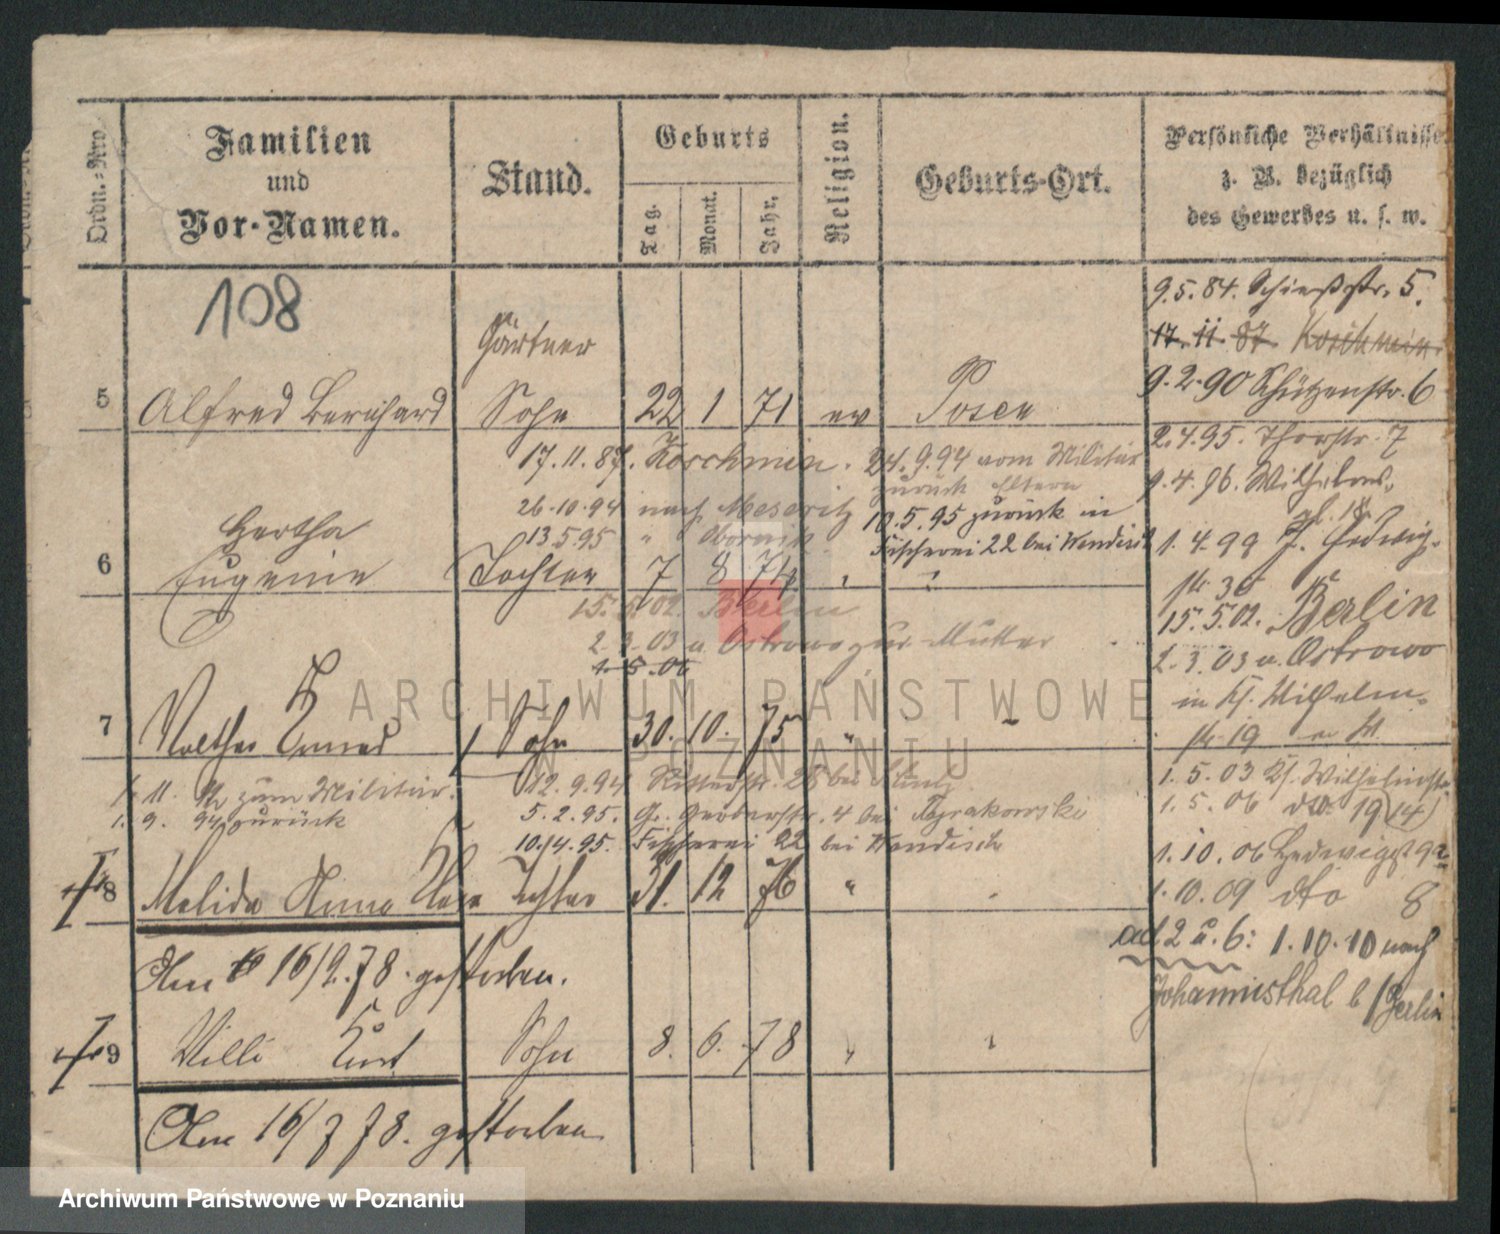 Ordn.-Nro.
Familien
und
Vor-Namen.
Stand.
Geburts
Tag.
Monat.
Jahr.
Religion.
Geburts-Ort.
Persönliche Verhältnisse
z. B. bezüglich
des Gewerbes u. s. w.
108
9.5.84. Schießstr. 5.
17. 11 87 Koschmin.
Gärtner
9.2.90 Schützenstr. 6
5 Alfred Bernhard Sohn 22 1 71 ev Posen
2.4.95. Thorstr. 7
17.11.87. Koschmin. 24.9.94 vom Militär
zurück Eltern
9.4.96. Wilhelms-
pl. 18
26.10.94 nach Meseritz 10.5.95 zurück in
13.5.95 " Obornik. Fischerei 22 bei Wendisch
1.4.99 Hedwig-
Hertha
6 Eugenie Tochter 7 8 74 " "
str. 36
15.5.02. Berlin
15.5.02. Berlin
2.3.03 n Ostrowo zur Mutter
2.3.03 n. Ostrowo
1.5.06
in K. Wilhelm-
7 Walther Sohn 30. 10. 75 "
str 19
1. 11. zum Militär.
1. 9. 94 zurück
12.9.94 Ritterstr. 28 bei
5.2.95. Gr. Gerberstr. 4 bei
10/4.95. Fischerei 22 bei Wendisch
1.5.03 K. Wilhelmstr
1.5.06 dto 19 (14)
1.10.06 Hedwigst 9
8 Melida Anna Tochter 31. 12 76 "
1.10.09 dto 8
ad 2 u. 6: 1.10.10 nach
Johannisthal b/Berlin
Am 16/2.78. gestorben.
9 Willi Kurt Sohn 8. 6. 78 " "
Am 16/7 78. gestorben
ARCHIWUM PAŃSTWOWE
W POZNANIU
Archiwum Państwowe w Poznaniu